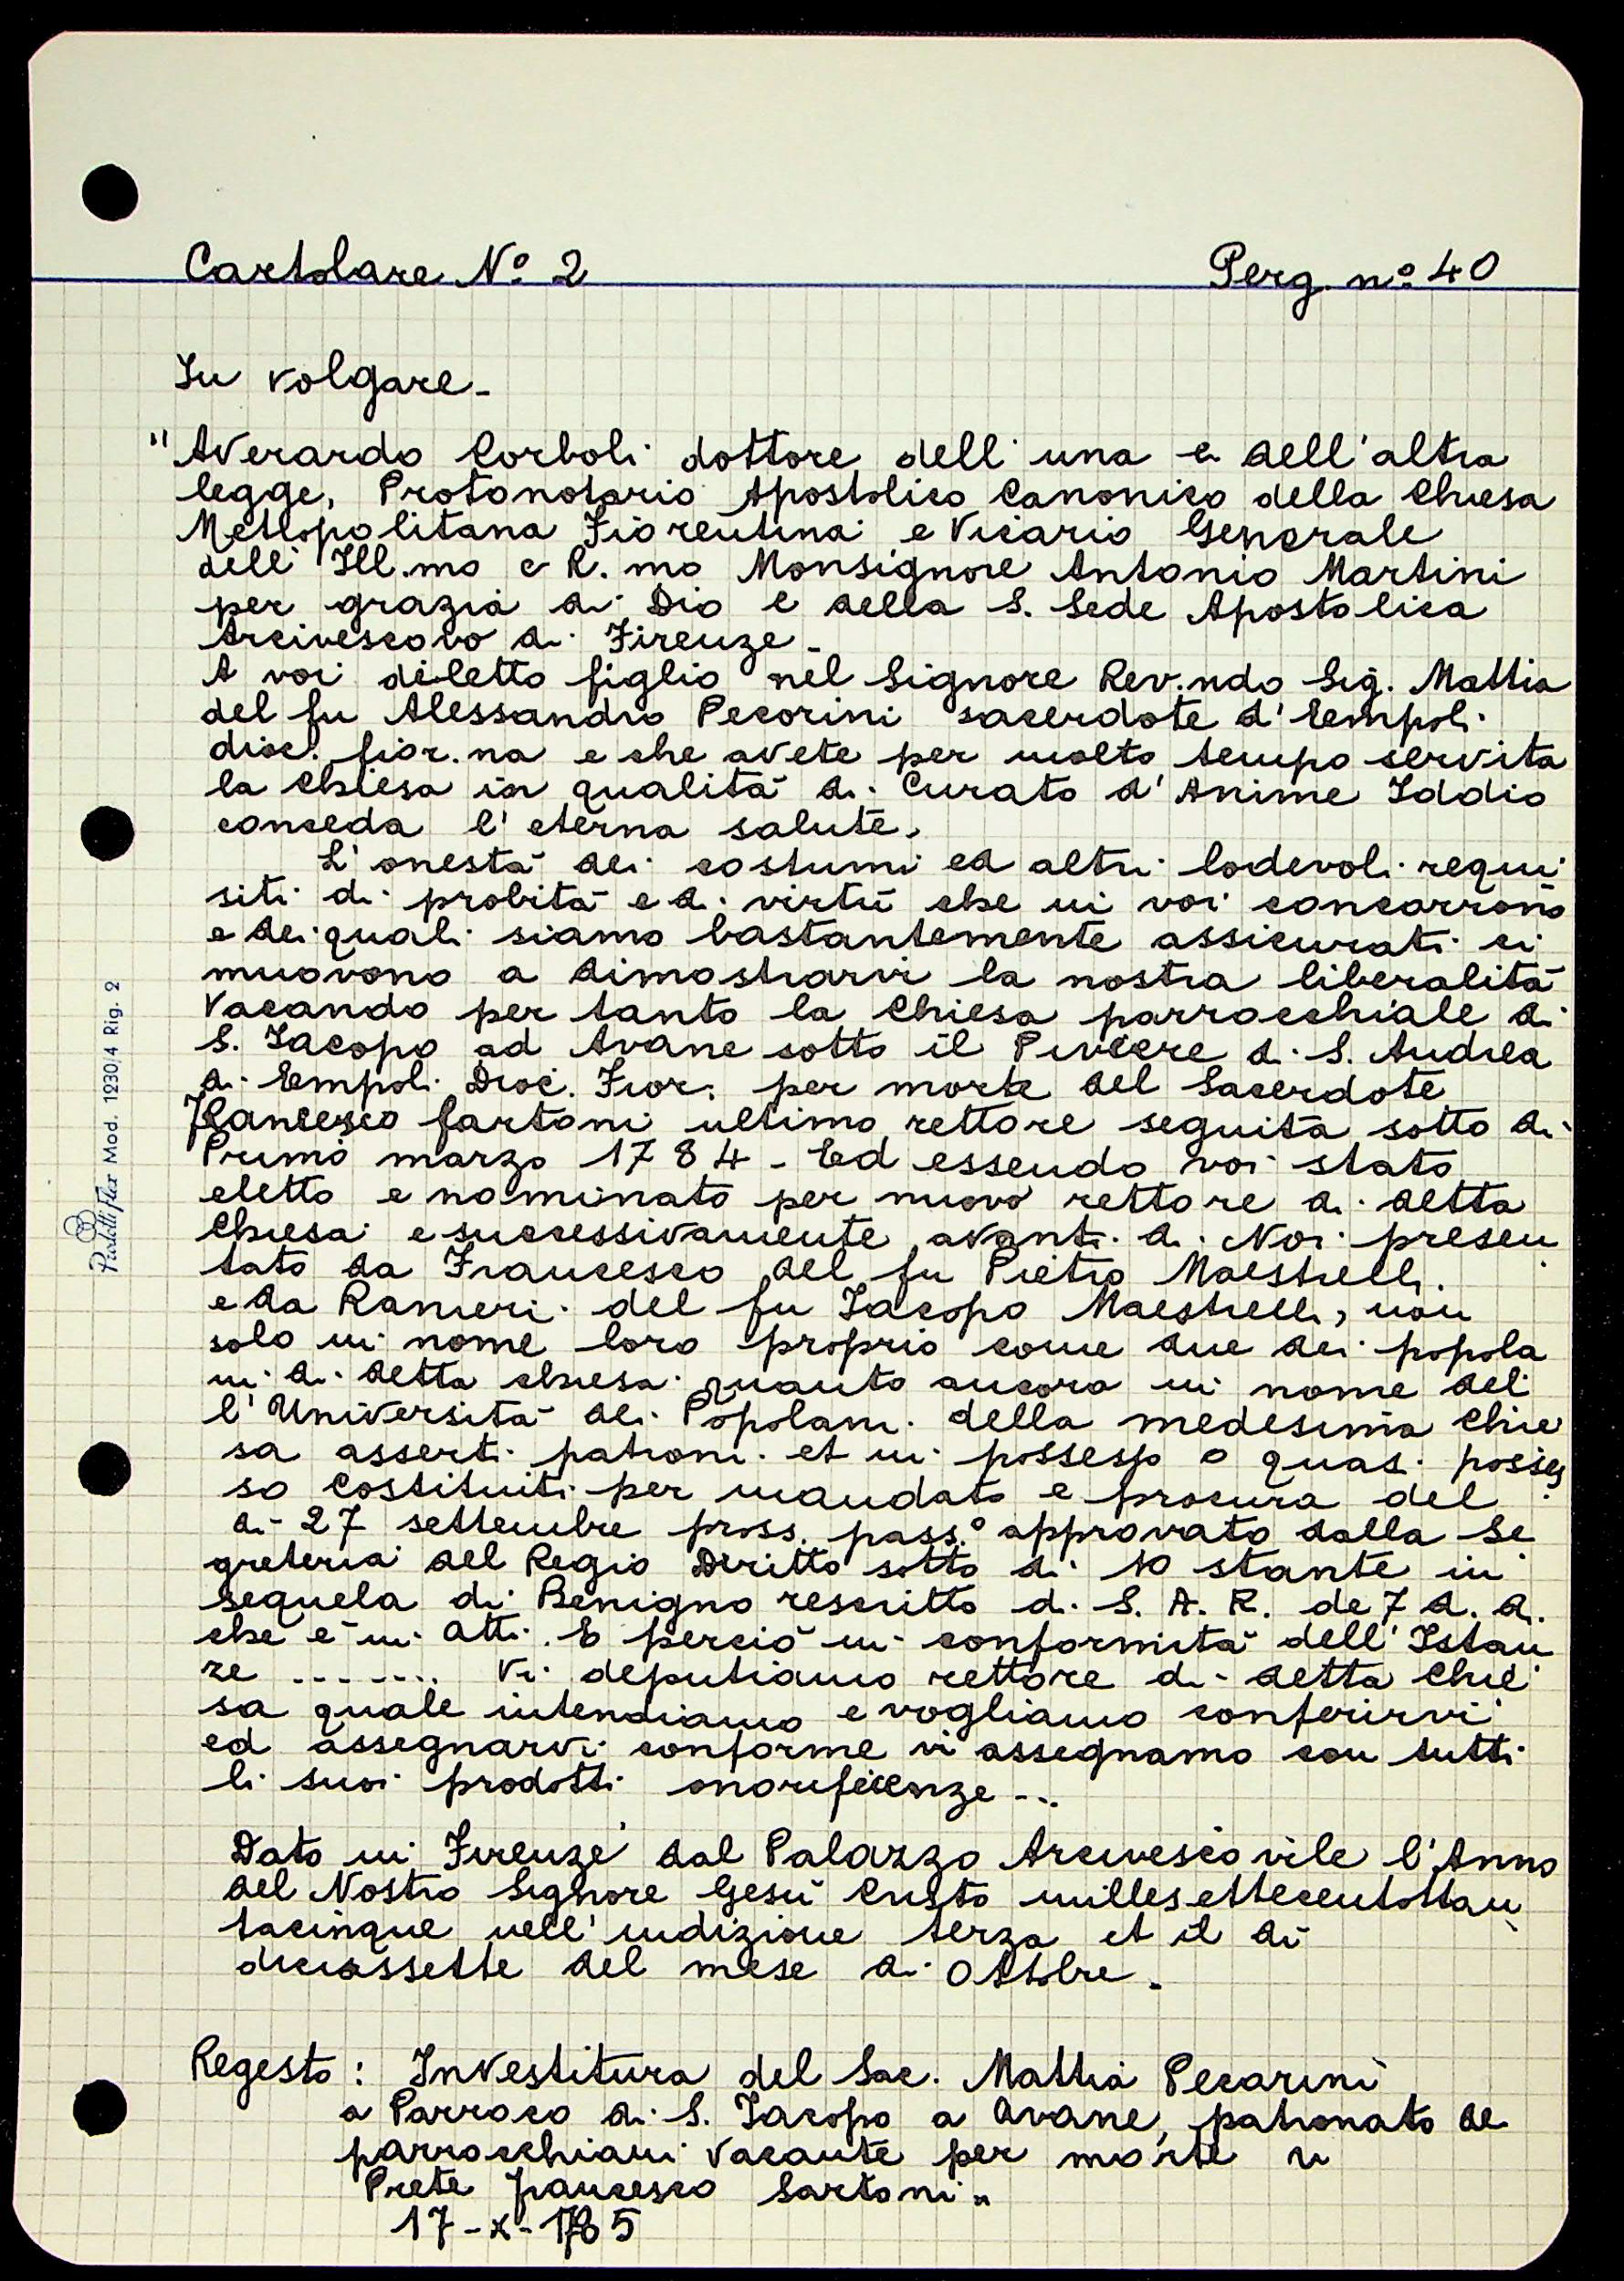 Cartolare N° 2 Perg. n° 40
In volgare -
"Averardo Corboli dottore dell'una e dell'altra
legge, Protonotario Apostolico Canonico della Chiesa
Metropolitana Fiorentina e Vicario Generale
dell'Ill.mo e R.mo Monsignore Antonio Martini
per grazia di Dio e della S. Sede Apostolica
Arcivescovo di Firenze -
A voi diletto figlio nel Signore Rev.ndo Sig. Mattia
del fu Alessandro Pecorini sacerdote d'Empoli
dioc. fior.na e che avete per molto tempo servita
la Chiesa in qualità di Curato d'Anime Iddio
conceda l'eterna salute.
L'onestà dei costumi ed altri lodevoli requi
siti di probità e di virtù che in voi concorrono
e dei quali siamo bastantemente assicurati ci
muovono a dimostrarvi la nostra liberalità
Vacando per tanto la Chiesa parrocchiale di
S. Iacopo ad Avane sotto il Piviere di S. Andrea
di Empoli Dioc. Fior. per morte del Sacerdote
Francesco Sartoni ultimo rettore seguita sotto dì
Primo marzo 1784 - Ed essendo voi stato
eletto e nominato per nuovo rettore di detta
Chiesa e successivamente avanti di Noi presen
tato da Francesco del fu Pietro Maestrelli
e da Ranieri del fu Iacopo Maestrelli, non
solo in nome loro proprio come due dei popola
ni di detta chiesa quanto ancora in nome del
l'Università dei Popolani della medesima Chie
sa asserti patroni et in possesso o quasi posses
so costituiti per mandato e procura del
dì 27 settembre pross. pass.° approvato dalla Se
greteria del Regio Diritto sotto dì 10 stante in
sequela di Benigno rescritto di S. A. R. de 7 d. d.
che è in atti. E perciò in conformità dell'Istan
ze ....... Vi deputiamo rettore di detta Chie
sa quale intendiamo e vogliamo conferirvi
ed assegnarvi conforme vi assegnamo con tutti
li suoi prodotti onorificenze ...
Dato in Firenze dal Palazzo Arcivescovile l'Anno
del Nostro Signore Gesù Cristo millesettecentottan
tacinque nell'indizione terza et il dì
diciassette del mese di Ottobre.
Regesto: Investitura del Sac. Mattia Pecorini
a Parroco di S. Iacopo a Avane, patronato de
parrocchiani vacante per morte
Prete Francesco Sartoni"
17-X-1785
Mod. 1230/4 Rig. 2